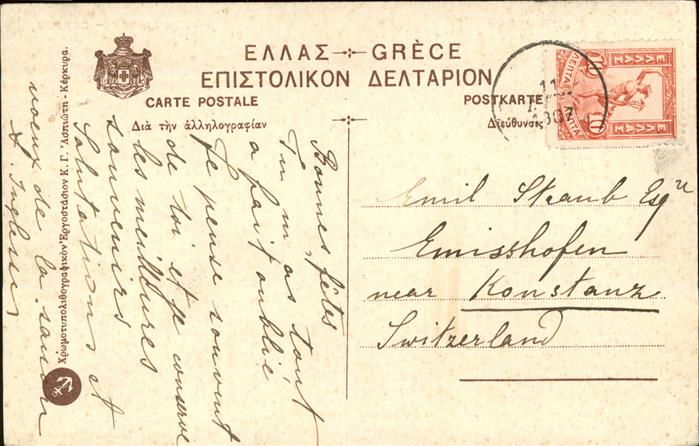 ΕΛΛΑΣ GRÈCE
ΕΠΙΣΤΟΛΙΚΟΝ ΔΕΛΤΑΡΙΟΝ
CARTE POSTALE
POSTKARTE
Διὰ τὴν ἀλληλογραφίαν
Διεύθυνσις
ΕΛΛΑΣ
ΛΕΠΤΑ
10
10
11
1907
Χρωμοτυπολιθογραφικὸν Ἐργοστάσιον Κ. Γ. Ἀσπιώτη - Κέρκυρα.
Bonnes fêtes
Tu m'as tout
a fait oublié
Je pense souvent
de toi et je conserve
les meilleures
souvenirs
Salutations et
voeux de la saison
Emil Straub Esqre
Emisshofen
near Konstanz
Switzerland